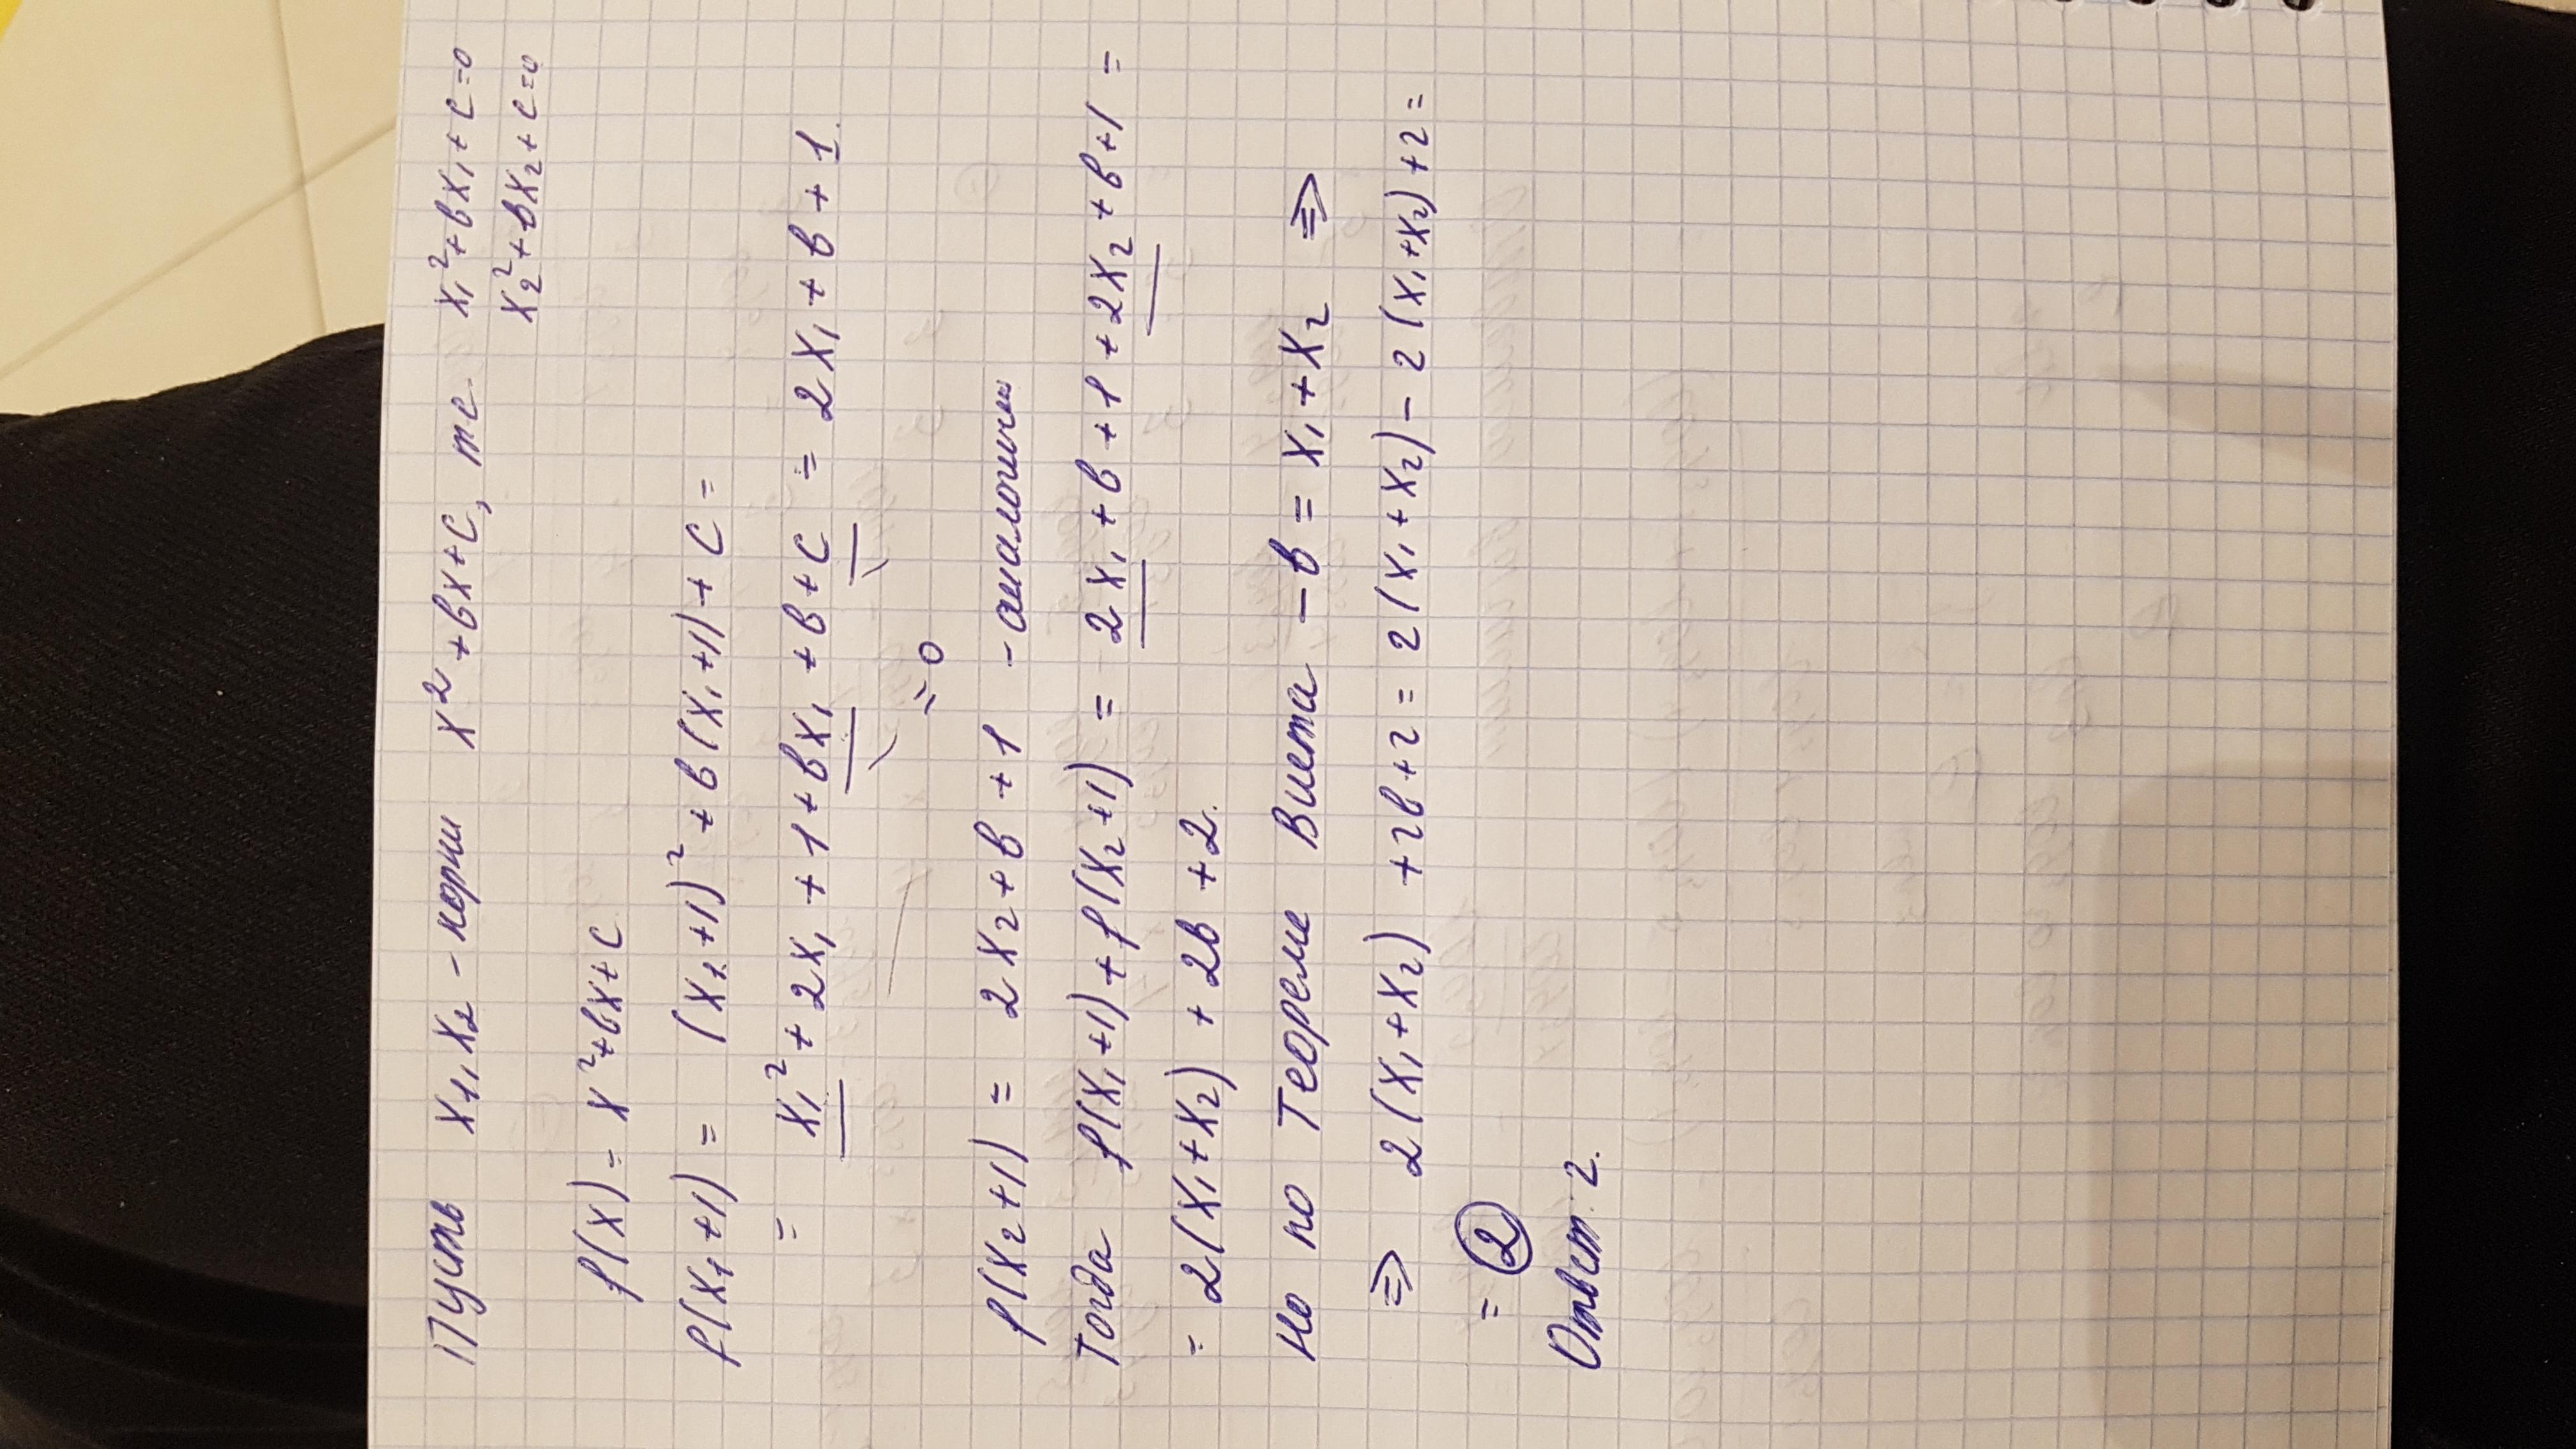 Пусть x₁, x₂ - корни x² + вx + c, те. x₁² + вx₁ + c = 0
x₂² + вx₂ + c = 0
f(x) = x² + вx + c
f(x₁+1) = (x₁+1)² + в(x₁+1) + c =
= x₁² + 2x₁ + 1 + вx₁ + в + c = 2x₁ + в + 1.
= 0
f(x₂+1) = 2x₂ + в + 1 - аналогично
Тогда f(x₁+1) + f(x₂+1) = 2x₁ + в + 1 + 2x₂ + в + 1 =
= 2(x₁+x₂) + 2в + 2.
Но по Теореме Виета -в = x₁ + x₂ ⇒
⇒ 2(x₁+x₂) + 2в + 2 = 2(x₁+x₂) - 2(x₁+x₂) + 2 =
= 2
Ответ: 2.